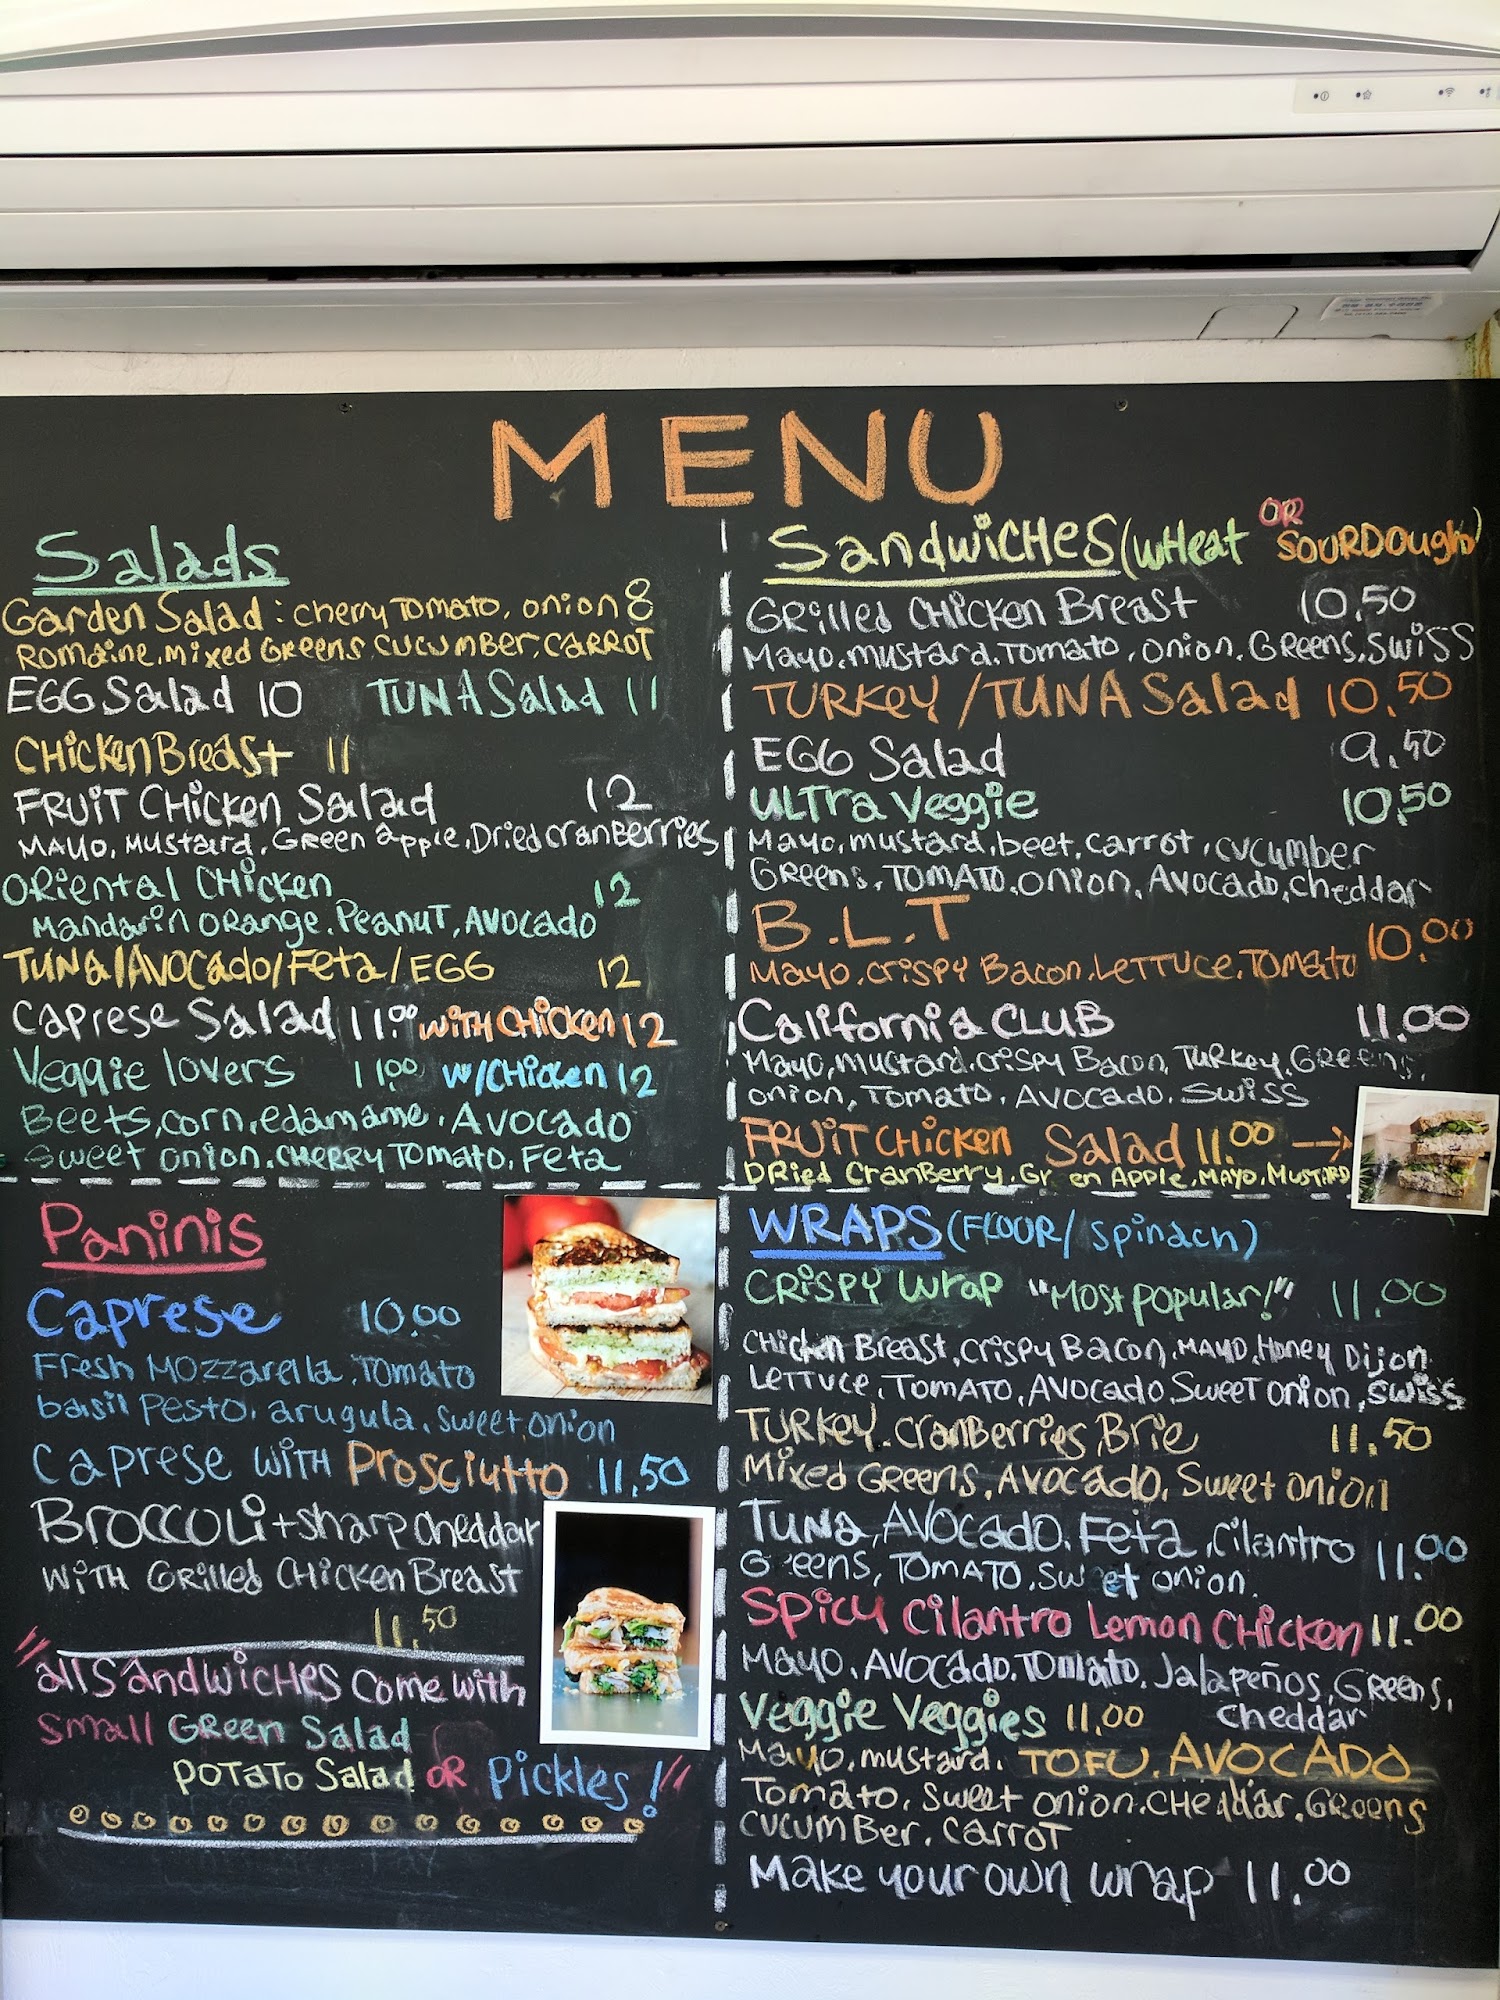 MENU
Salads
Garden Salad: Cherry Tomato, Onion 8
Romaine, Mixed Greens, Cucumber, Carrot
EGG Salad 10 TUNA Salad 11
Chicken Breast 11
FRUIT CHICKEN Salad 12
Mayo, Mustard, Green Apple, Dried Cranberries
Oriental Chicken 12
Mandarin Orange, Peanut, Avocado
Tuna/Avocado/Feta/EGG 12
Caprese Salad 11.00 with Chicken 12
Veggie lovers 11.00 w/Chicken 12
Beets, corn, edamame, Avocado
Sweet Onion, Cherry Tomato, Feta
Paninis
Caprese 10.00
Fresh Mozzarella, Tomato
basil Pesto, arugula, sweet onion
Caprese with Prosciutto 11.50
Broccoli + sharp cheddar
with Grilled Chicken Breast
11.50
"all Sandwiches come with
Small Green Salad
Potato Salad OR Pickles!"
Sandwiches (wheat OR Sourdough)
Grilled Chicken Breast 10.50
Mayo, mustard, Tomato, Onion, Greens, Swiss
TURKEY / TUNA Salad 10.50
EGG Salad 9.50
ULTRA Veggie 10.50
Mayo, mustard, beet, carrot, cucumber
Greens, Tomato, Onion, Avocado, cheddar
B.L.T 10.00
Mayo, Crispy Bacon, Lettuce, Tomato
California CLUB 11.00
Mayo, mustard, crispy Bacon, Turkey, Greens,
Onion, Tomato, Avocado, Swiss
FRUIT CHICKEN Salad 11.00 →
Dried Cranberry, Gr en Apple, Mayo, Mustard
WRAPS (FLOUR/Spinach)
CRISPY Wrap "Most Popular!" 11.00
Chicken Breast, Crispy Bacon, Mayo, Honey Dijon
Lettuce, Tomato, Avocado, Sweet Onion, Swiss
TURKEY, Cranberries, Brie 11.50
Mixed Greens, Avocado, Sweet onion
Tuna, Avocado, Feta, Cilantro 11.00
Greens, Tomato, Sweet onion
Spicy Cilantro Lemon Chicken 11.00
Mayo, Avocado, Tomato, Jalapeños, Greens,
Cheddar
Veggie Veggies 11.00
Mayo, mustard, TOFU, AVOCADO
Tomato, Sweet onion, Cheddar, Greens
Cucumber, Carrot
Make your own wrap 11.00